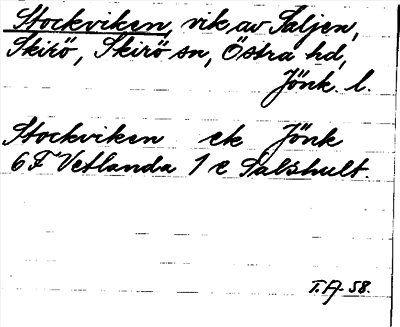 Stockviken, vik av Saljen,
Skirö, Skirö sn, Östra hd,
Jönk. l.
Stockviken ek Jönk
6F Vetlanda 1 e Salshult.
T.A. 58.